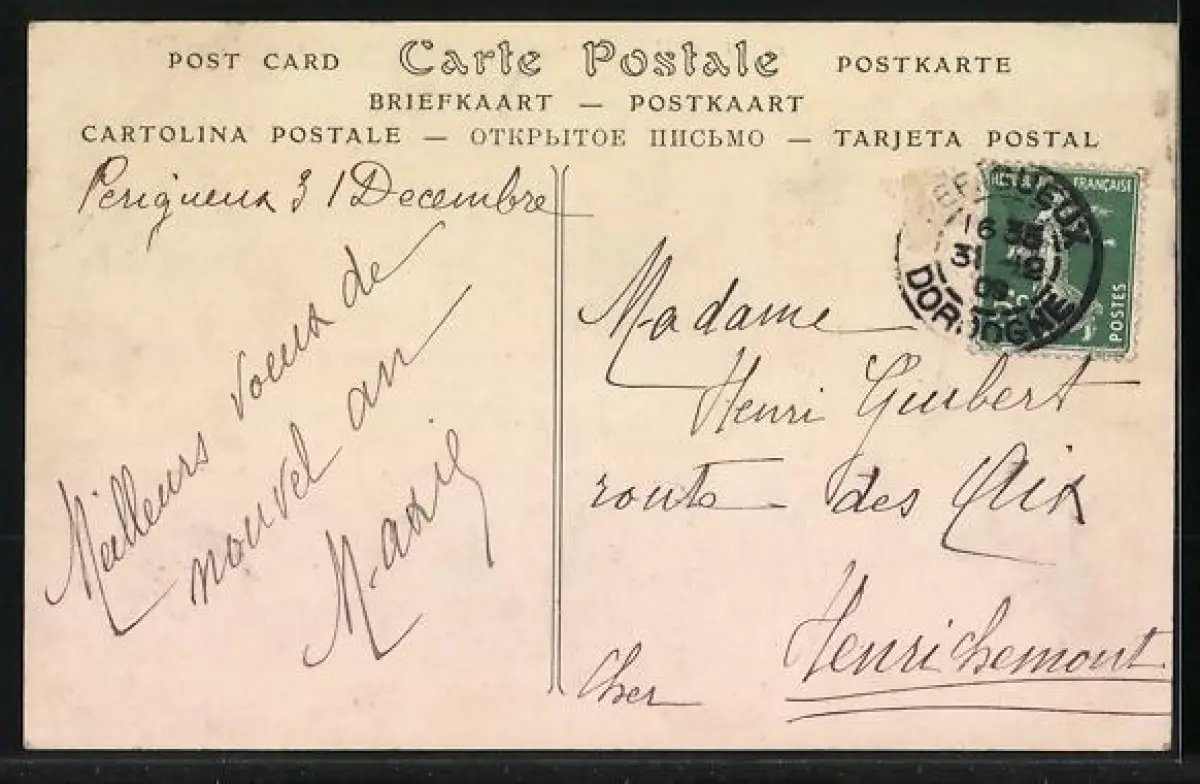 POST CARD Carte Postale POSTKARTE
BRIEFKAART — POSTKAART
CARTOLINA POSTALE — ОТКРЫТОЕ ПИСЬМО — TARJETA POSTAL
Perigueux 31 Decembre
Meilleurs voeux de
nouvel an
FRANÇAISE
POSTES
16 35
31 12
DORDOGNE
Madame
Henri Guibert
route des Aix
Henrichemont
Cher